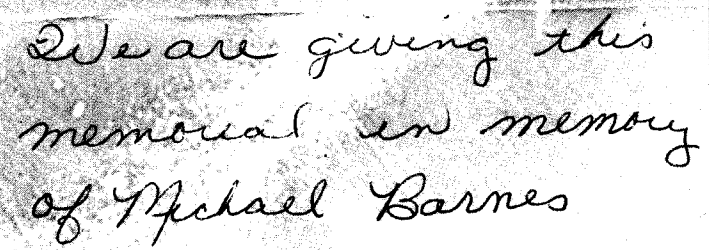 We are giving this
memorial in memory
of Michael Barnes